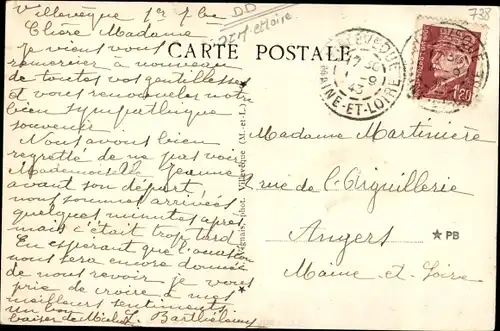 Villevêque 1er 7bre
Chère Madame
Je viens vous
remercier à nouveau
de toutes vos gentillesses
et vous renouveler notre
bien sympathique
souvenir
Nous avons bien
regretté de ne pas voir
Mademoiselle Jeanne
avant son départ,
nous sommes arrivées
quelques minutes après
mais c'était trop tard
En esperant que l'occasion
nous sera encore donnée
de nous revoir je vous
prie de croire à mes
meilleurs sentiments
un bon
baiser de
CARTE POSTALE
DD
738
VILLEVEQUE
17 30
1 9
43
MAINE-ET-LOIRE
1F20
phot. Villevêque (M.-et-L.)
Madame Martinière
2 rue de l'Aiguillerie
Angers
Maine et Loire
★ PB